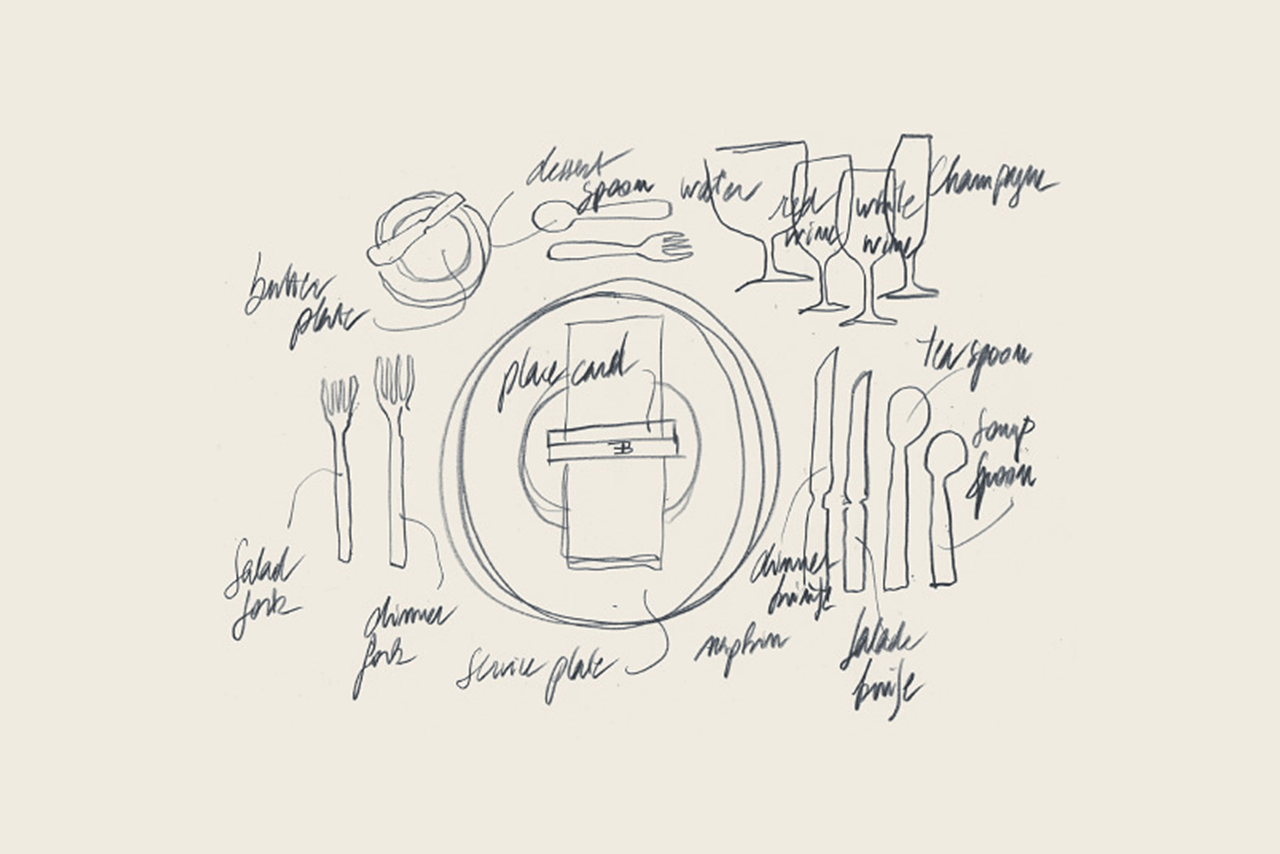 dessert
spoon
water
red
wine
white
wine
Champagne
butter
plate
place card
tea spoon
soup
spoon
EB
Salad
fork
dinner
fork
service plate
napkin
dinner
knife
Salade
knife